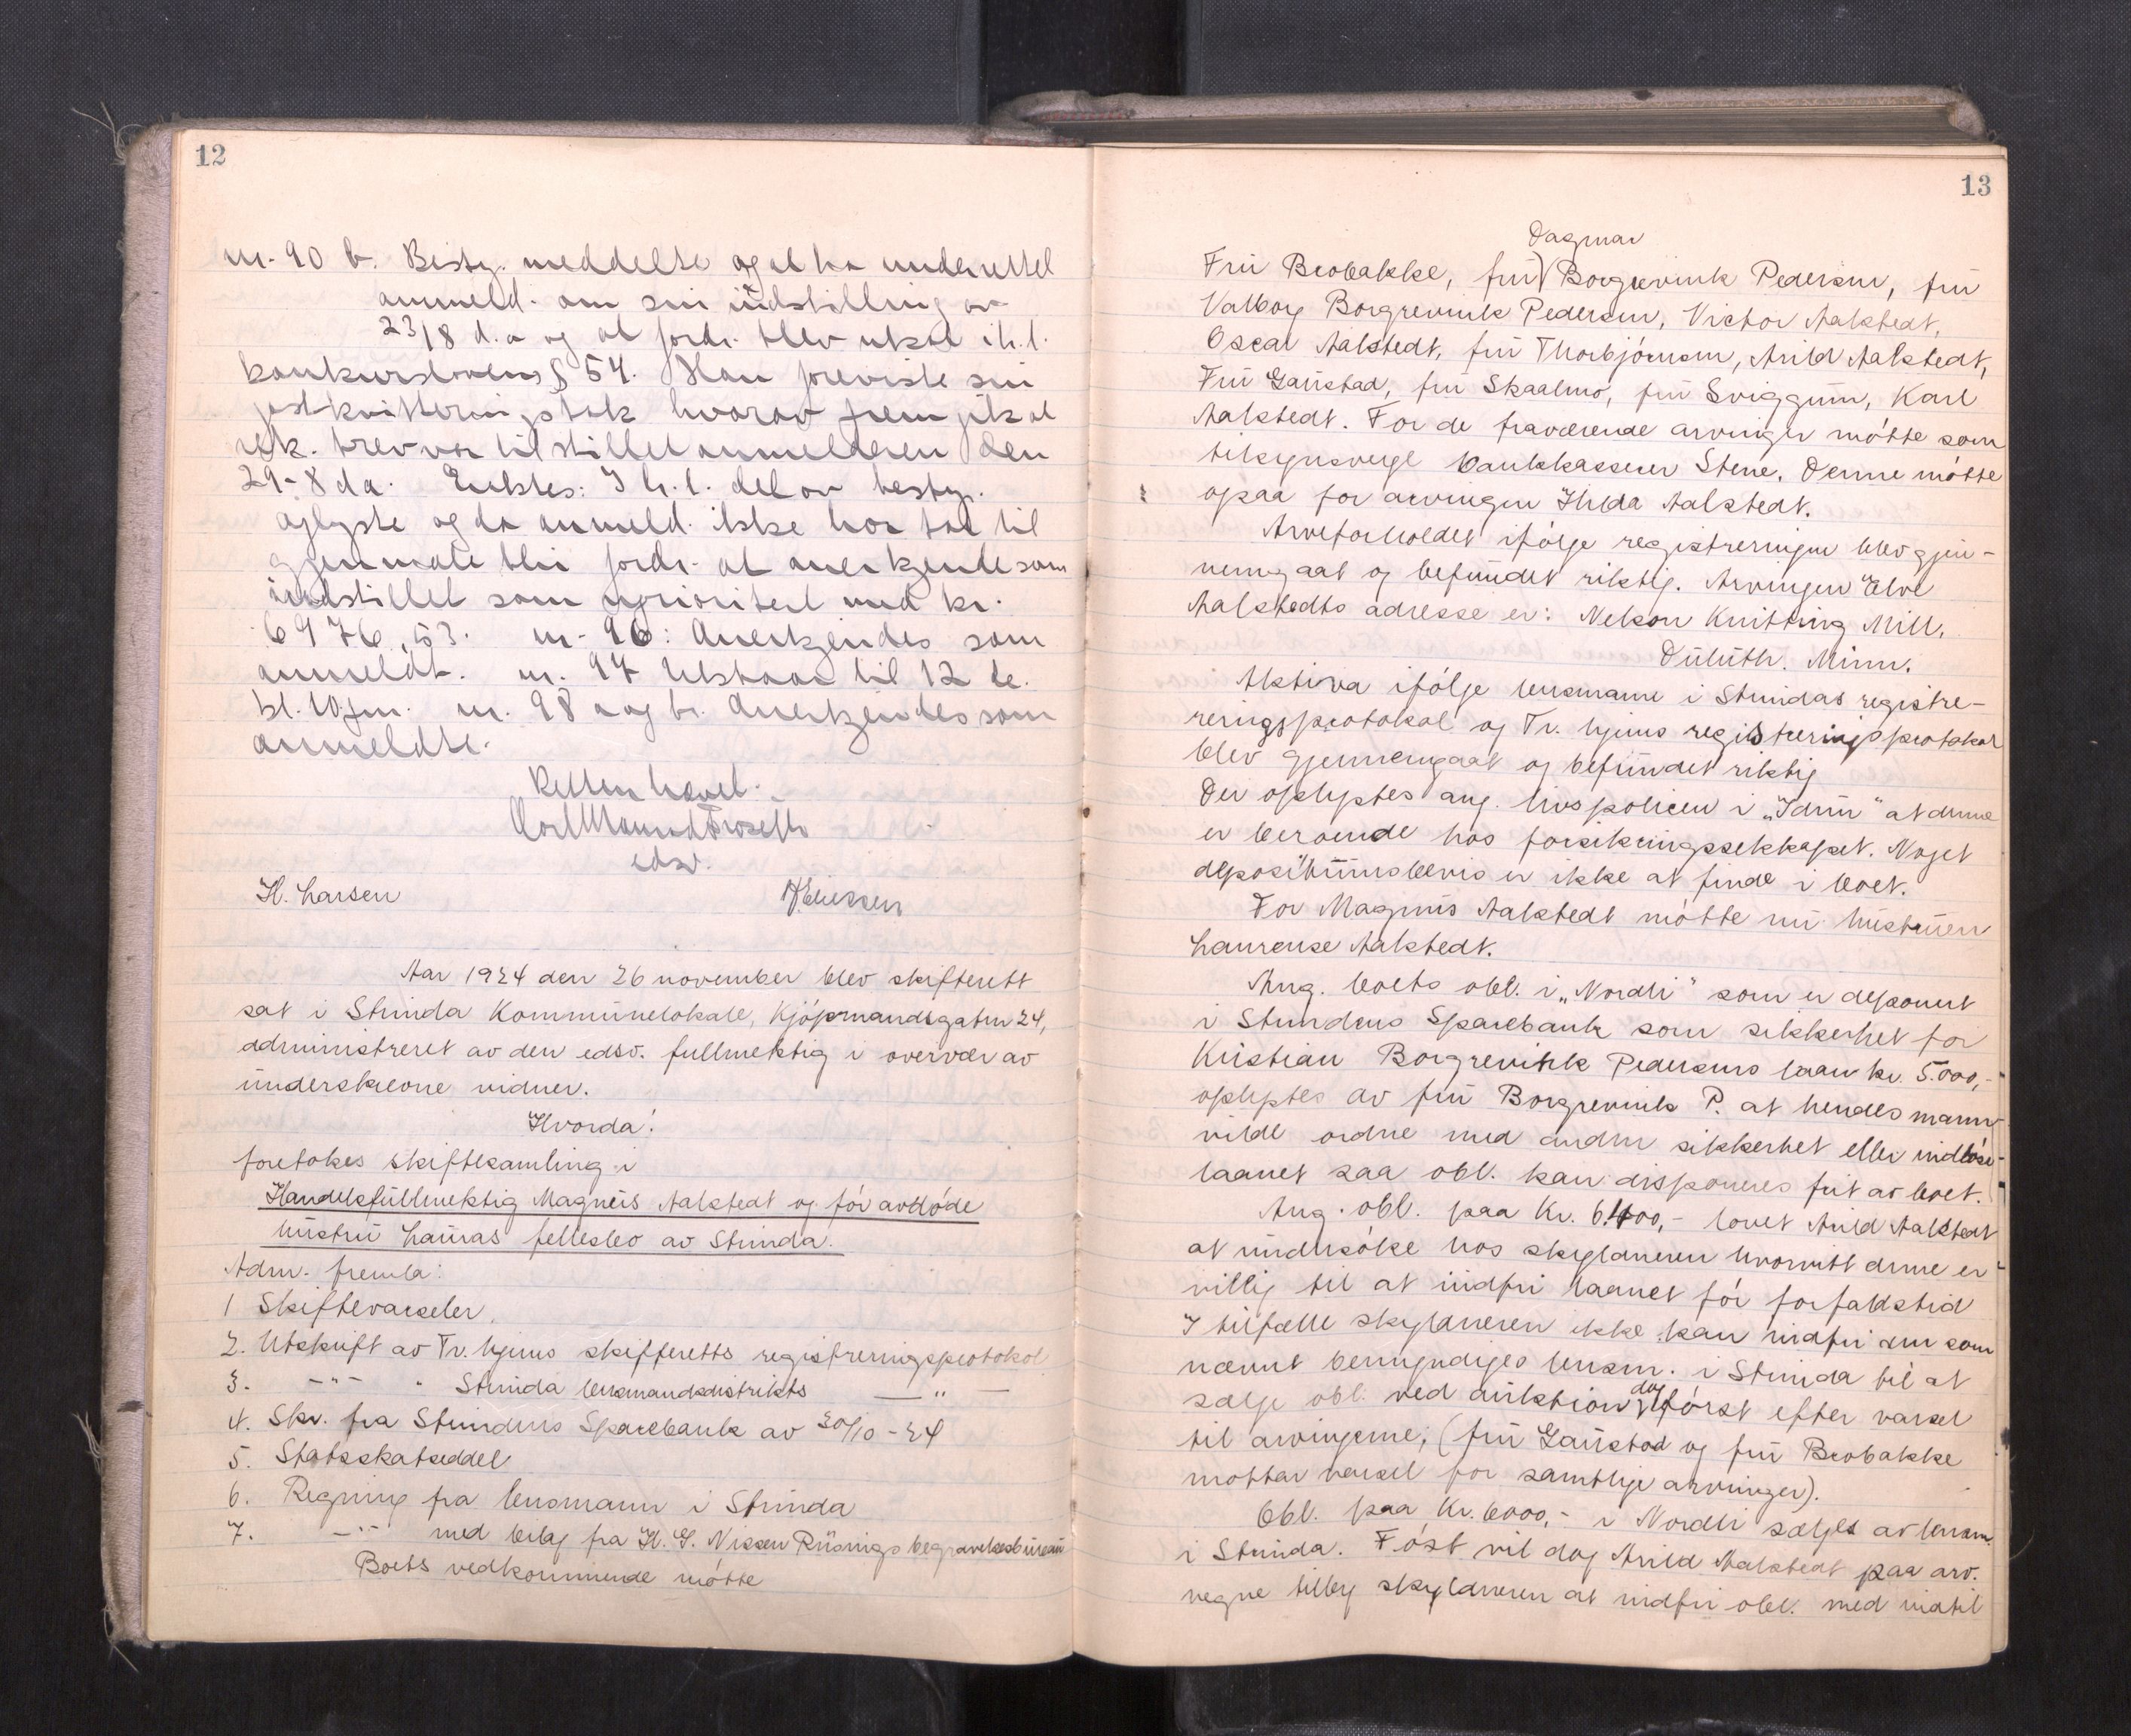 12
nr. 90 b. Besty. meddelte og at ha underrettet
anmeld. om sin indstilling av
23/8 d.a og at fordr. blev utsat ih.t.
konkurslovens § 54. Han foreviste sin
postkvitteringsbok hvorav fremgik at
rek. brev var tilstillet anmelderen den
29-8 da. Eraktes: I h.t. det av besty.
oplyste og da anmeld. ikke har tat til
gjenmæle blir fordr. at anerkjende som
indstillet som uprioritert med kr.
6976,53. nr. 96: Anerkjendes som
anmeldt. nr. 97 Utstaar til 12 de.
kl. 10 fm. nr. 98 a og b. Anerkjendes som
anmeldte.
Retten hævet.
edsv.
H. Larsen
Aar 1924 den 26 november blev skifterett
sat i Strinda Kommunelokale, Kjøpmandsgaten 24,
administreret av den edsv. fullmektig i overvær av
underskrevne vidner.
Hvorda:
foretokes skiftesamling i
Handelsfullmektig Magnus Aalstedt og før avdøde
hustru Lauras fellesbo av Strinda.
Adm. fremla:
1 Skiftevarseler.
2. Utskrift av Tr.hjems skifteretts registreringsprotokol
3. -"- " Strinda lensmandsdistrikts —"—
4. Skr. fra Strindens Sparebank av 30/10-24
5. Statsskatseddel
6. Regning fra lensmann i Strinda
7. -"- med bilag fra H. G. Nissen Rüsnigs begravelsesbureau
Boets vedkommende møtte
13
Dagmar
Fru Brobakke, fru Borgrevink Pedersen, fru
Valborg Borgrevink Pedersen, Victor Aalstedt,
Oscar Aalstedt, fru Thorbjørnsen, Arild Aalstedt,
Fru Gaustad, fru Skaalmo, fru Sviggum, Karl
Aalstedt. For de fraværende arvinger møtte som
tilsynsverge bankkasserer Stene. Denne møtte
ogsaa for arvingen Hilda Aalstedt.
Arveforholdet ifølge registreringen blev gjen-
nemgaat og befundet riktig. Arvingen Elve
Aalstedts adresse er: Nelson Knitting Mill,
Duluth. Minn.
Aktiva ifølge lensmann i Strindas registre-
reringsprotokol og Tr. hjems registreringsprotokol
blev gjennemgaat og befundet riktig
Der oplystes ang. livspolicen i „Idun" at denne
er beroende hos forsikringsselskapet. Noget
depositumsbevis er ikke at finde i boet.
For Magnus Aalstedt møtte nu hustruen
Laurense Aalstedt.
Ang. boets obl. i „Nordli" som er deponert
i Strindens Sparebank som sikkerhet for
Kristian Borgrevink Pedersens laan kr. 5.000,-
oplystes av fru Borgrevink P. at hendes mann
vilde ordne med anden sikkerhet eller indløse
laanet saa obl. kan disponeres frit av boet.
Ang. obl. paa Kr. 6.400,- lovet Arild Aalstedt
at undersøke hos skyldneren hvorvidt denne er
villig til at indfri laanet før forfaldstid
I tilfælle skyldneren ikke kan indfri den som
nævnt bemyndiges lensm. i Strinda til at
sælge obl. ved auktion dog først efter varsel
til arvingerne, (fru Gaustad og fru Brobakke
mottar varsel for samtlige arvinger).
Obl. paa Kr. 6000,- i Nordli sælges av lensm.
i Strinda. Føst vil dog Arild Aalstedt paa arv.
vegne tilby skyldneren at indfri obl. med indtil